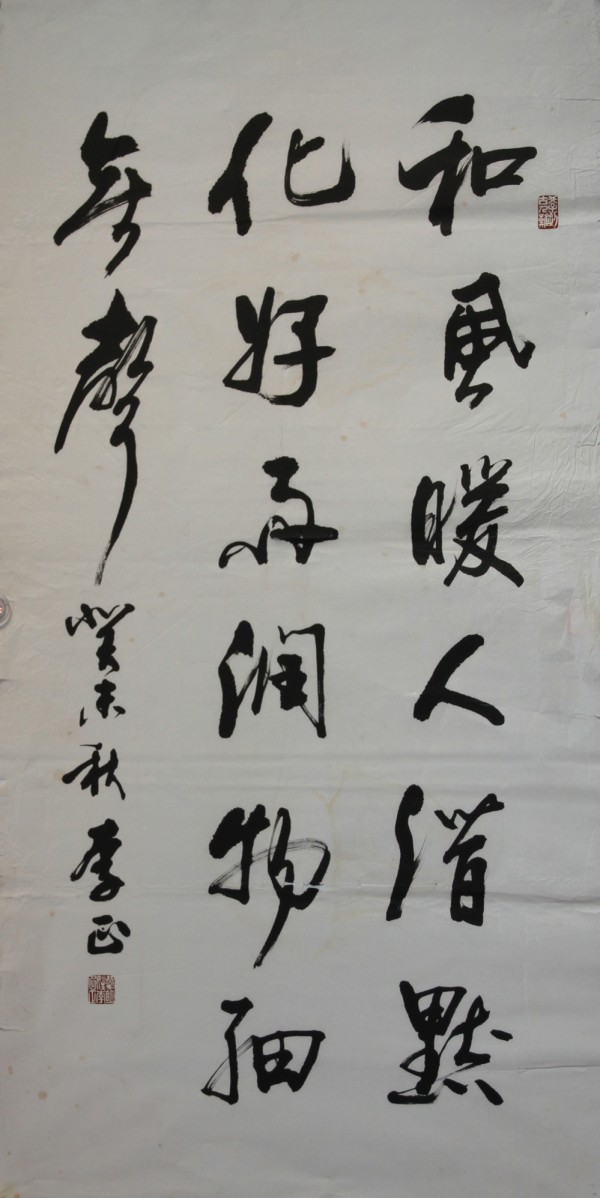 和風暖人潛默
化好雨潤物細
無聲 癸未秋 李正